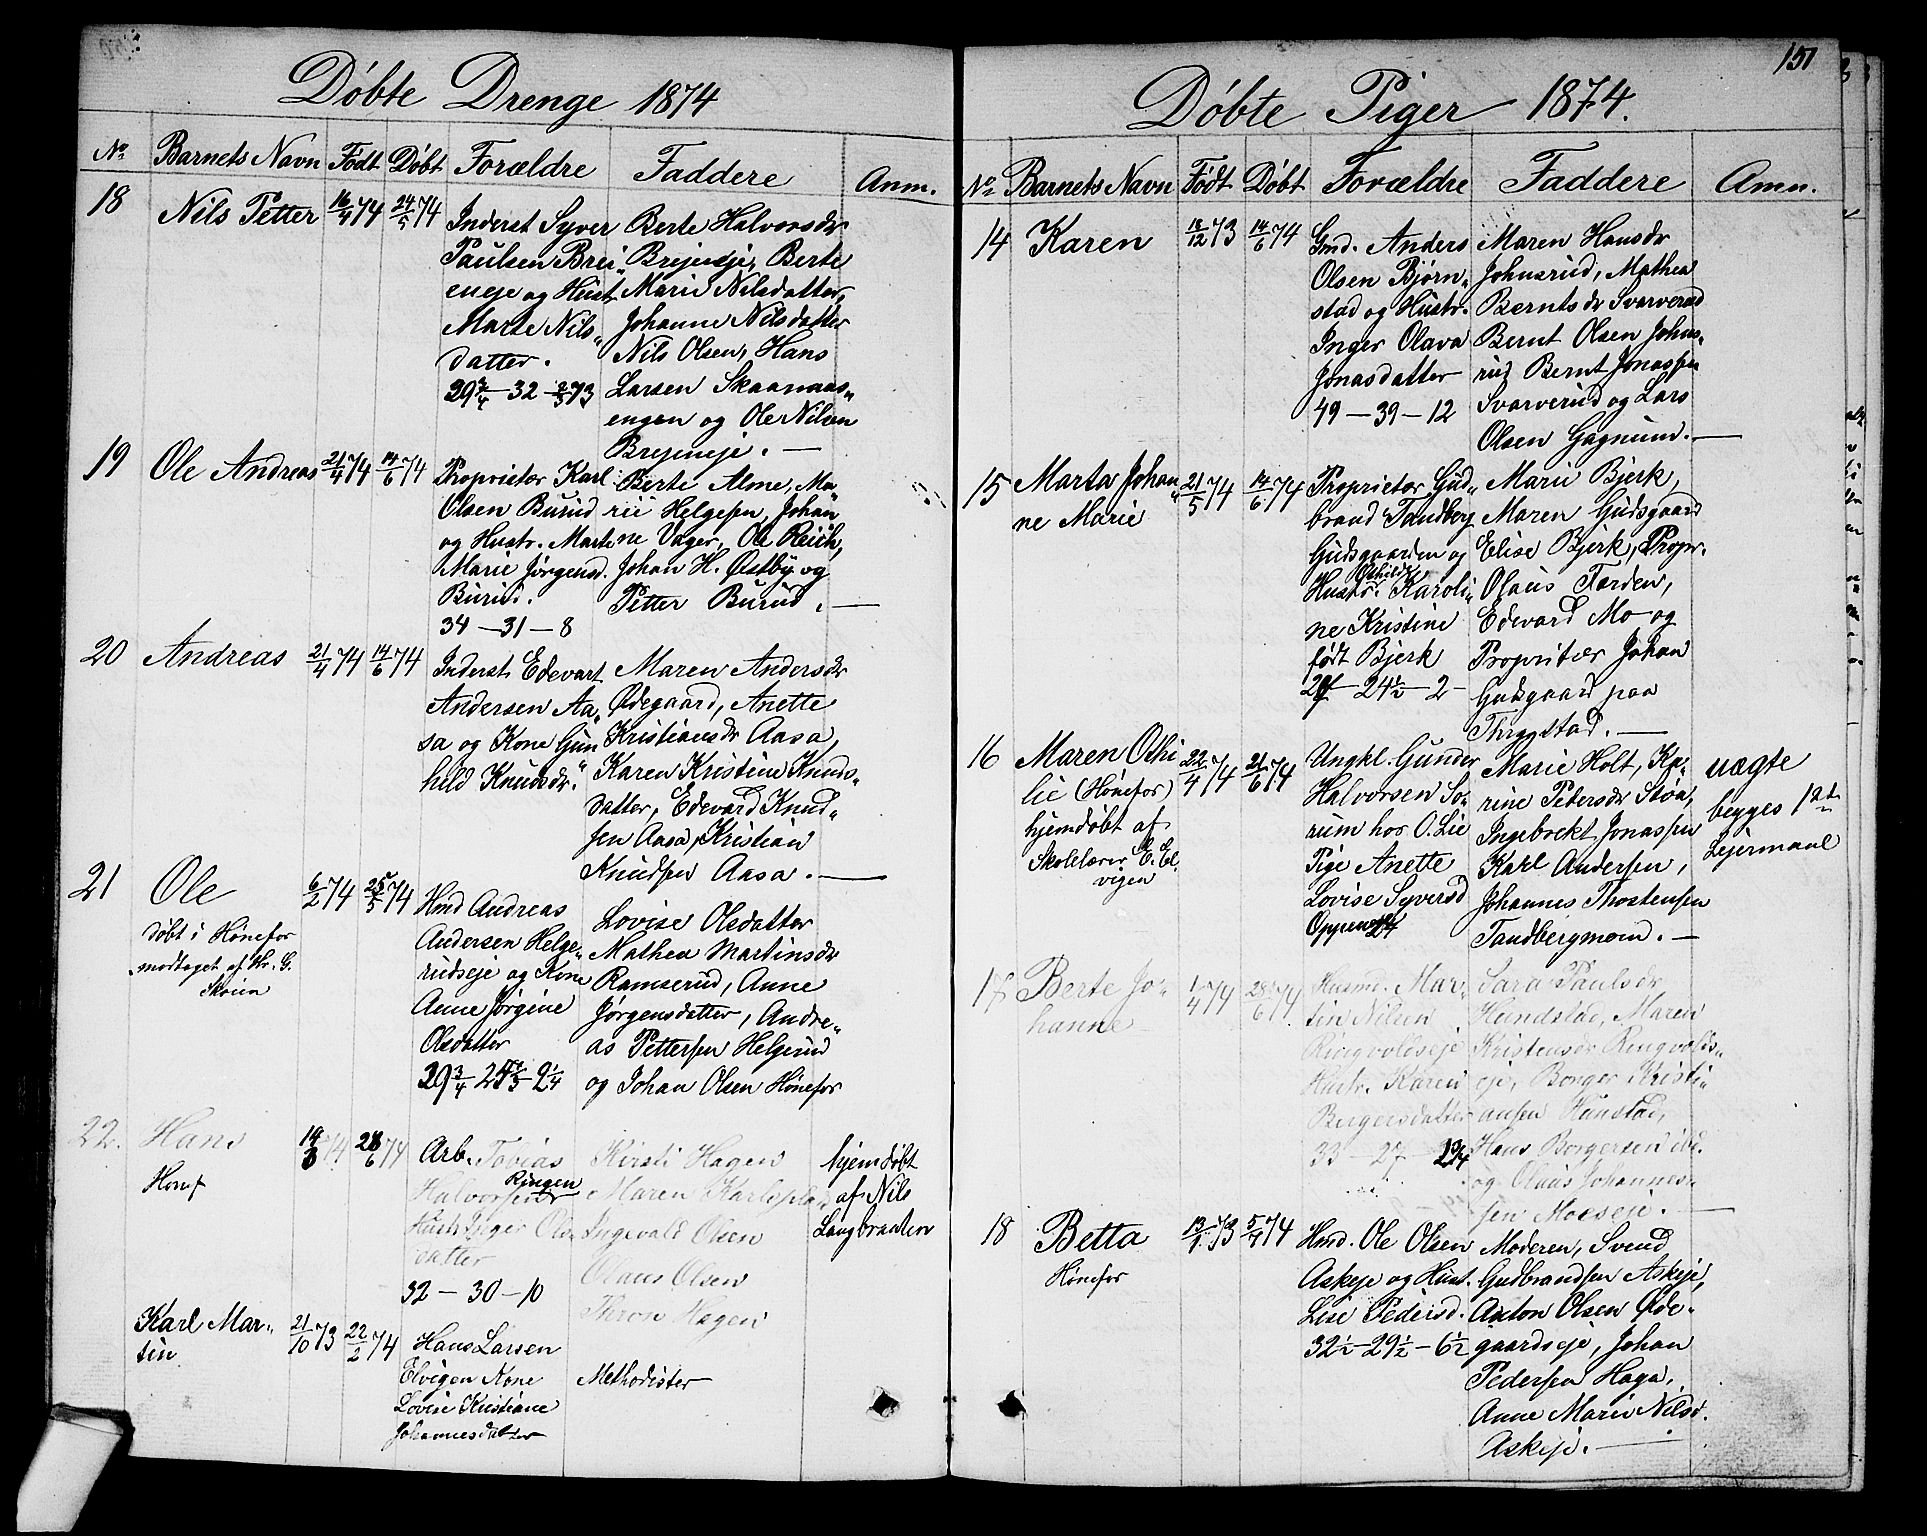 Døbte Drenge 1874
No. Barnets Navn Født Døbt Forældre Faddere Anm.
18 Nils Petter 16/4 74 24/5 74
Inderst Syver
Paulsen Brei„
eneje og Hust.
Marte Nils„
datter.
29 3/4 — 32 —
Berte Halvorsdr
Brejeneje, Berte
Marie Nilsdatter,
Johanne Nilsdatter
Nils Olsen, Hans
Larsen Skaanaas„
engen og Ole Nilsen
Brejeneje. —
19 Ole Andreas 21/4 74 14/6 74
Proprietær Karl
Olsen Burud
og Hustr. Marte
Marie Jörgensd.
Burud.
34 — 31 — 8
Berte Alme, Ma„
rii Helgesen, Johan
ne Vager, Ole Reich,
Johan H. Østby og
Petter Burud. —
20 Andreas 21/4 74 14/6 74
Inderst Edevart
Andersen Aa„
sa og Kone Gun„
hild Knudsdr.
Maren Andersdr
Ødegaard, Anette
Kristiansdr Aasa,
Karen Kristine Knuds„
datter, Edevard Knud„
sen Aasa, Kristian
Knudsen Aasa. —
21 Ole 6/2 74 25/5 74
døbt i Hönefos
modtaget af Hr. G.
Skoien
Hmd Andreas
Andersen Helge„
rudseje og Kone
Anne Jörgine
Olsdatter
29 3/4 — 2 1/4
Lovise Olsdatter
Mathea Martinsdr
Ramserud, Anne
Jørgensdatter, Andre„
as Pettersen Helgerud
og Johan Olsen Hönefos
22. Hans 74 28/6 74
Honef
Arb. Tobias
Ringen
Halvorsen
Hustr Inger Ols„
datter
32 — 30 — 10
Kirsti Hagen
Maren Karlspla„
Ingevald Olsen
Olaus Olsen
Thron Hagen
hjemdøbt
af Nils
Langbraaten
Karl Mar„ 21/10 73 22/2 74
tin
Hans Larsen
Elvigen Kone
Lovise Kristiane
Johannesdatter
Methodister
151
Døbte Piger 1874.
No. Barnets Navn Født Døbt Forældre Faddere Amn.
14 Karen 18/12 73 14/6 74
Gmd. Anders
Olsen Bjørn„
stad og Hustr.
Inger Olava
Jonasdatter
49 — 39 — 12
Maren Hansdr
Johnsrud, Mathea
Berntsdr Svarverud
Bernt Olsen Johns„
rud Bernt Jonassen
Svarverud og Lars
Olsen Gagnum. —
15 Marta Johan„ 21/5 74 14/6 74
ne Marie
Proprietær Gud„
brand Tandberg
Gudsgaarden og
Othilde
Hustr. Karoli„
ne Kristine
født Bjerk
24 1/2 — 2 —
Marie Bjerk,
Maren Gudsgaard
Elise Bjerk, Propr.
Olaus Færden,
Edevard Mo og
Proprietær Johan
Gudsgaard paa
Thygstad. —
16 Maren Othi 22/4 74 21/6 74
lie (Hönefos)
hjemdøbt af
Skolelærer E. El„
vigen
Ungkl. Gunder
Halvorsen So„
rum hos O. Lie
Pige Anette
Lovise Syversd
Oppen 24
Marie Holt, Ka„
rine Pedersdr Støa,
Ingebrekt Jonassen
Karl Andersen,
Johannes Thostensen
Tandbergmoen. —
uægte
begges 1ste
Lejermaal
17 Berte Jo„ 1/4 74 28/6 74
hanne
Husm. Mar„
tin Nilsen
Ringvoldseje
Hustr. Karen
Borgersdatter
33 — 27 —
Sara Paulsdr
Hundstad, Maren
Kristensdr Ringvolds„
eje, Borger Kristi„
ansen Hunstad,
Hans Borgersen ibd.
og Olaus Johannes„
sen Moeseje. —
18 Betta 13/ 73 5/7 74
Hönefos
Hmd. Ole Olsen
Askeje og Hust.
Lise Pedersd.
32 1/2 — 29 1/2 — 6 1/2
Moderen, Svend
Gudbrandsen Askeje,
Anton Olsen Øde„
gaardseje, Johan
Pedersen Haga,
Anne Marie Nilsd.
Askeje. —